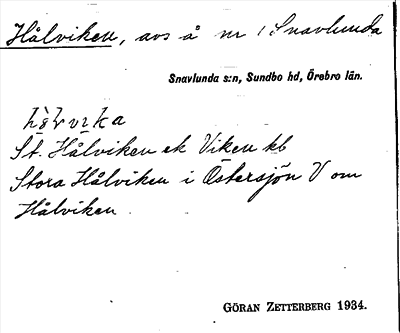 Hålviken, avs å nr 1 Snavlunda
Snavlunda s:n, Sundbo hd, Örebro län.
St. Hålviken ek Viken kb
Stora Hålviken i Östersjön V om
Hålviken.
GÖRAN ZETTERBERG 1934.